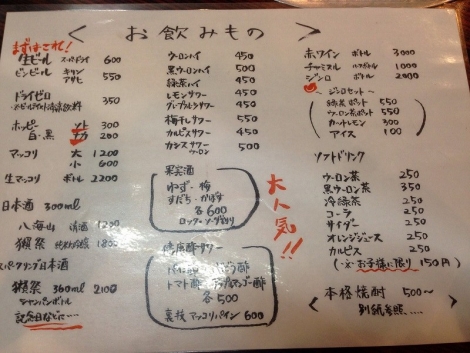 < お飲みもの >
まずはこれ!
生ビール スーパードライ 600
ビンビール キリン アサヒ 550
ドライゼロ 350
ホッピー ソト 300
白・黒 ナカ 200
マッコリ 大 1200
小 600
生マッコリ ボトル 2200
日本酒 300ml
八海山 清酒 1230
獺祭 1800
スパークリング日本酒
獺祭 360ml 2100
シャンパンボトル
記念日などに……
ウーロンハイ 450
黒ウーロンハイ 450
緑茶ハイ 450
レモンサワー 450
グレープフルーツサワー 450
梅干しサワー 550
カルピスサワー 450
カシスサワー 550
ウーロン
果実酒
ゆず・梅
すだち・かぼす
各600
ロック・ソーダわり
大人気!!
トマト酢
各500
裏技マッコリパイン 600
赤ワイン ボトル 3000
チャミスル ボトル 1000
ジンロ ボトル 2000
〜ジンロセット〜
緑茶ポット 550
ウーロン茶ポット 550
カットレモン 300
アイス 100
ソフトドリンク
ウーロン茶 250
黒ウーロン茶 350
冷緑茶 250
コーラ 250
サイダー 250
オレンジジュース 250
カルピス 250
(※お子様に限り 150円)
< 本格焼酎 500〜
別紙参照…… >